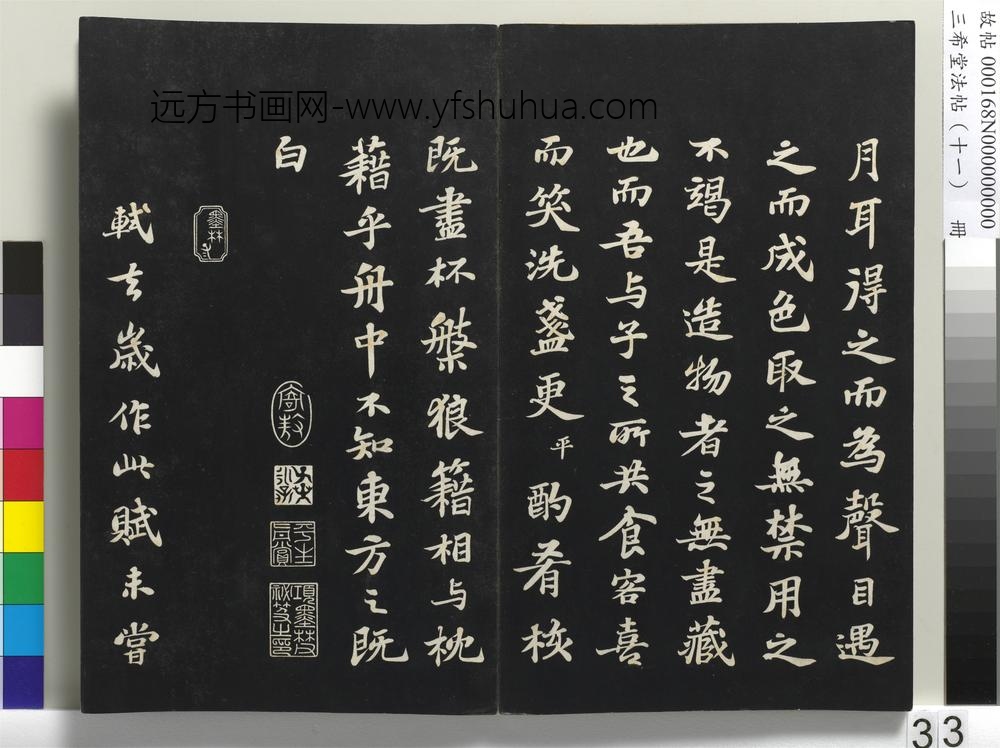 远方书画网-www.yfshuhua.com
故帖 000168N000000000
三希堂法帖（十一） 冊
月耳得之而為聲目遇
之而成色取之無禁用之
不竭是造物者之無盡藏
也而吾与子之所共食客喜
而笑洗盞更平酌肴核
既盡杯槃狼籍相与枕
藉乎舟中不知東方之既
白
寄敖
平生真賞
軾去歲作此賦未嘗
33